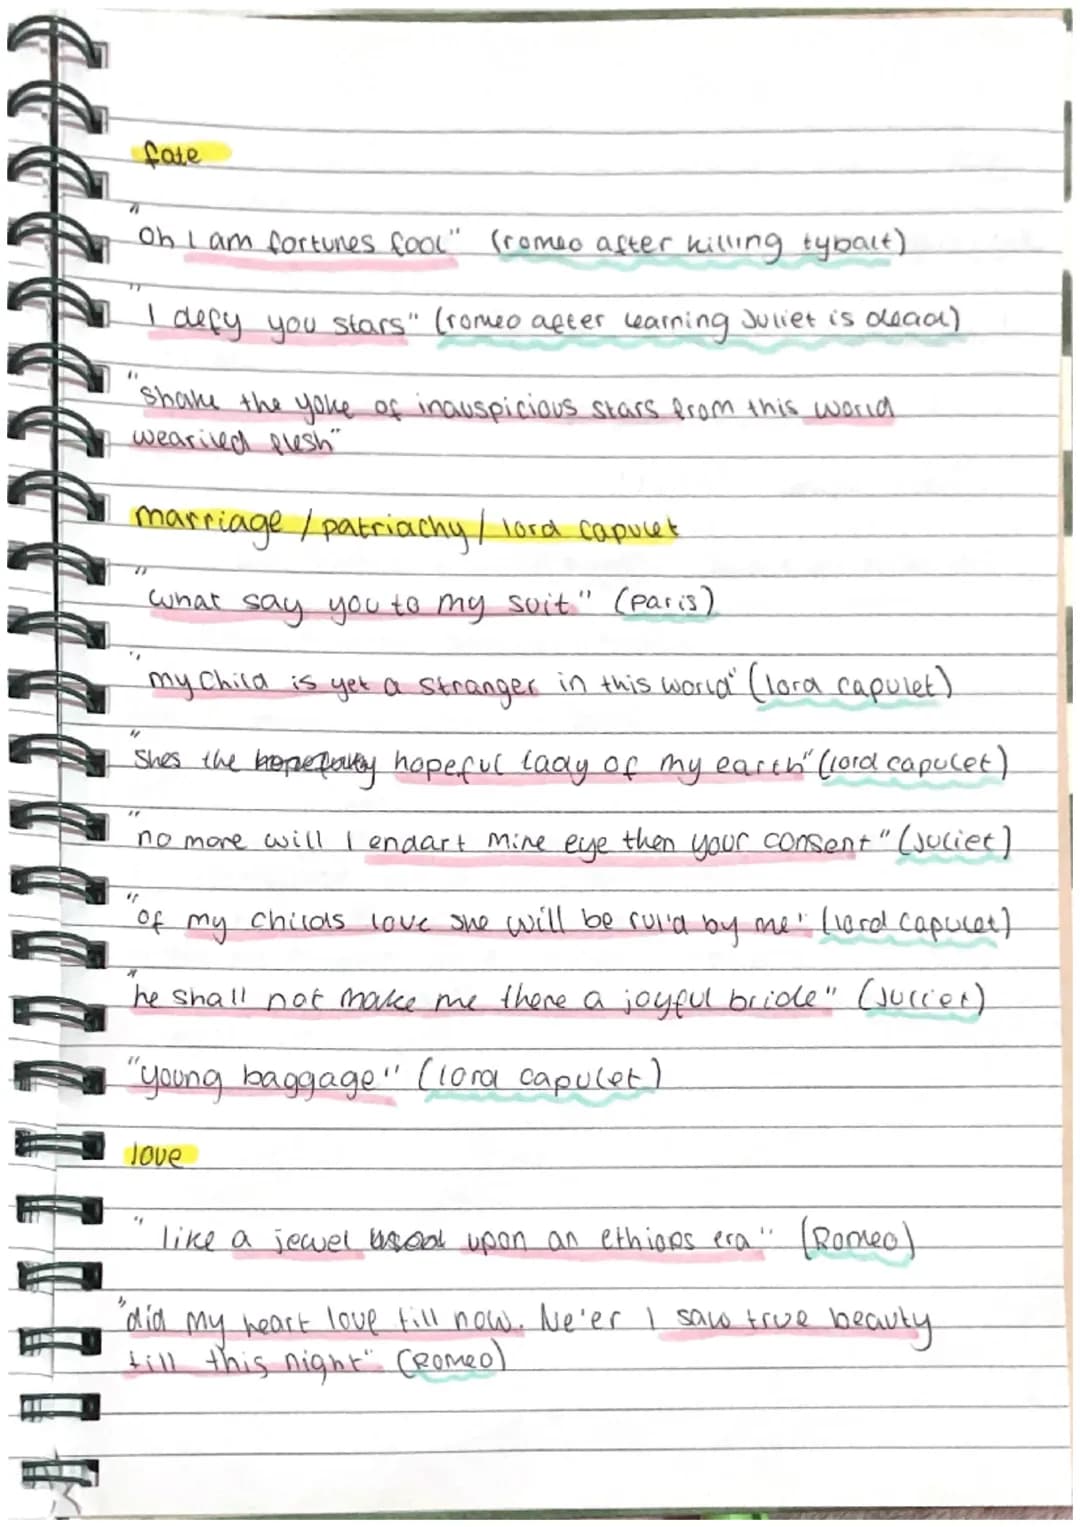 fate
"Oh I am fortunes fool" (romeo after killing tybalt)
"I defy you stars" (romeo after learning Juliet is dead)
"shake the yoke of inauspicious stars from this world
wearied flesh"
marriage / patriachy / lord capulet
"what say you to my suit" (Paris)
"my child is yet a stranger in this world" (lord capulet)
"shes the hopeful lady of my earth" (lord capulet)
"no more will I endart mine eye then your consent" (Juliet)
"of my childs love she will be rul'd by me" (lord capulet)
"he shall not make me there a joyful bride" (Juliet)
"young baggage" (lord capulet)
love
"like a jewel upon an ethiops era" (Romeo)
"did my heart love till now. Ne'er I saw true beauty
till this night" (Romeo)